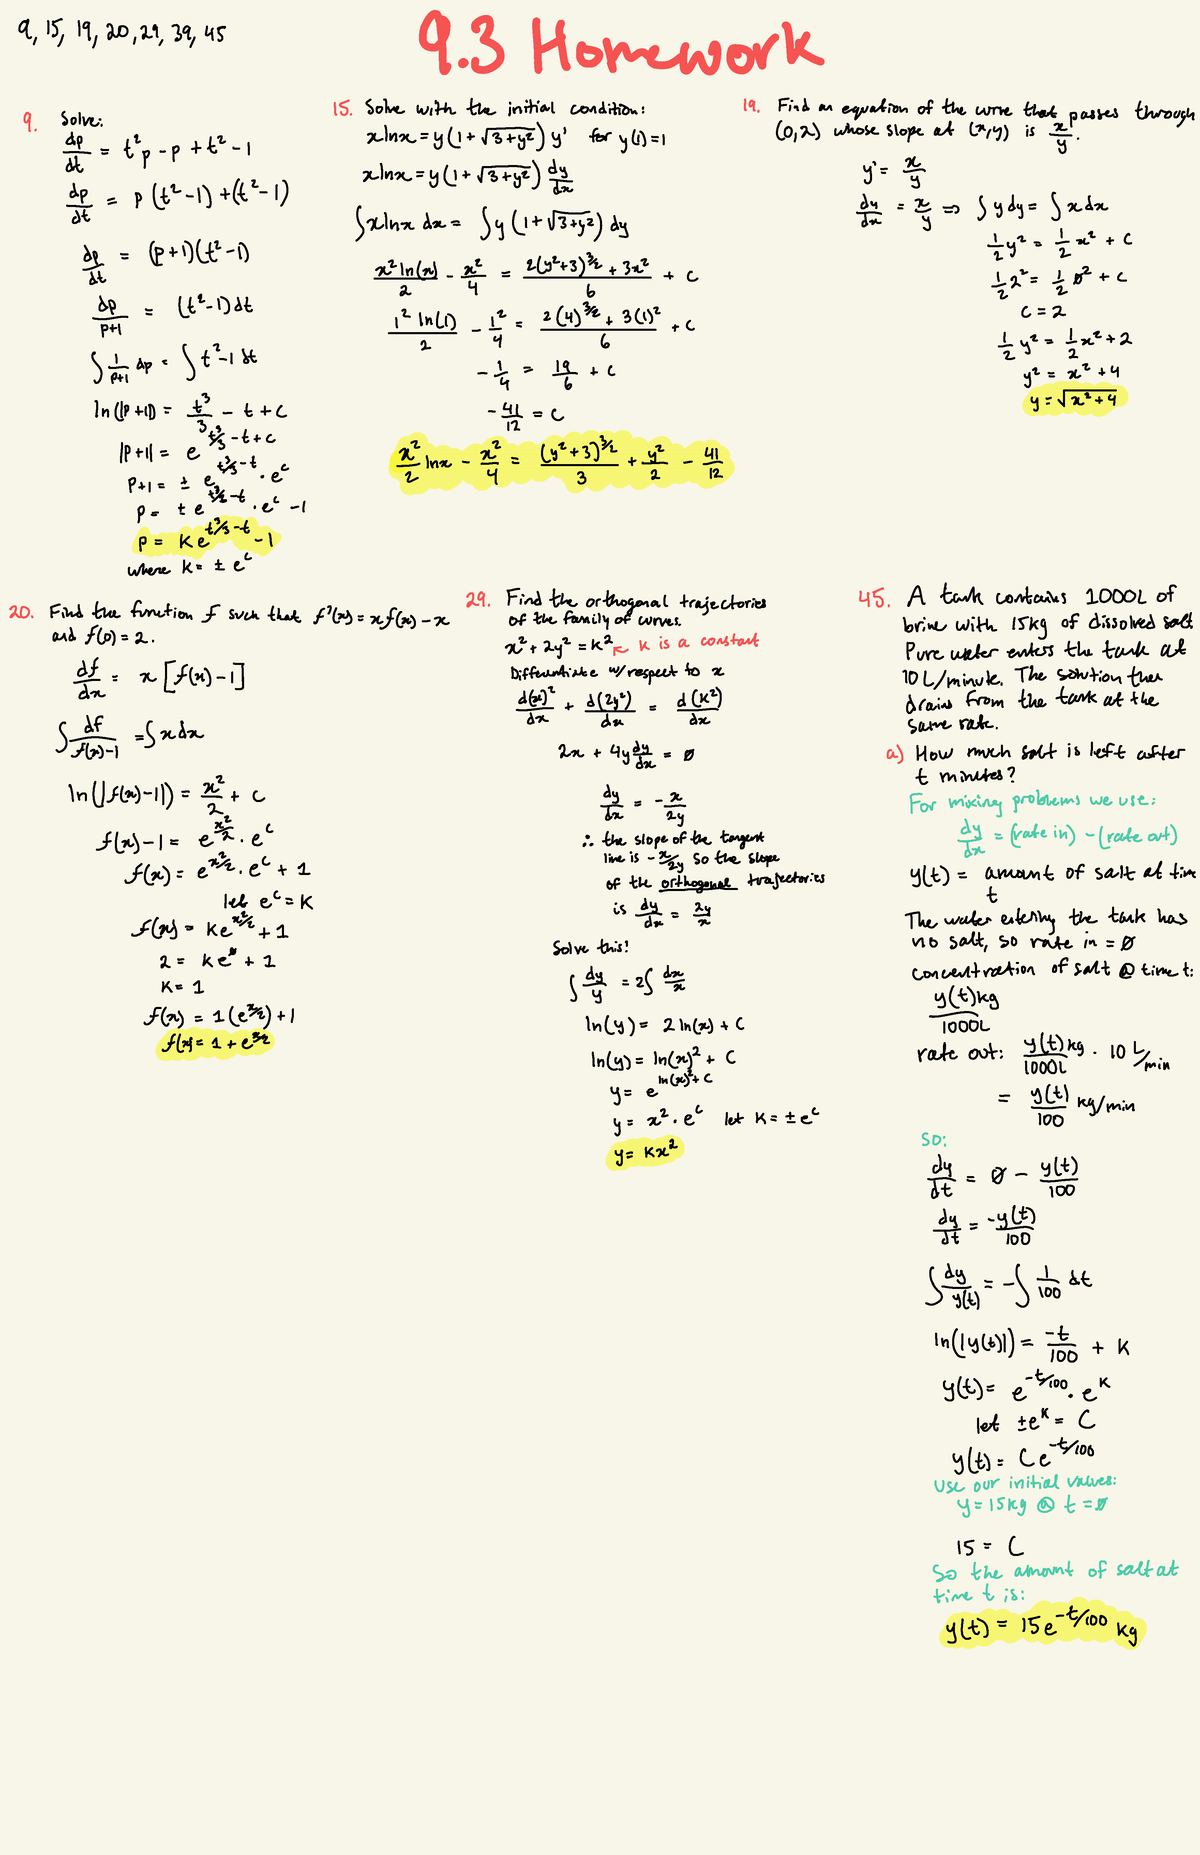 9, 15, 19, 20, 29, 39, 45
9.3 Homework
9. Solve:
dp/dt = t²p - p + t² - 1
dp/dt = p(t²-1) + (t²-1)
dp/dt = (p+1)(t²-1)
dp/p+1 = (t²-1)dt
∫ 1/p+1 dp = ∫ t²-1 dt
ln(|p+1|) = t³/3 - t + c
|p+1| = e^(t³/3 - t + c)
p+1 = ± e^(t³/3 - t) · e^c
p = ± e^(t³/3 - t) · e^c - 1
p = Ke^(t³/3 - t) - 1
where k = ± e^c
15. Solve with the initial condition:
xlnx = y(1+√3+y²) y' for y(1)=1
xlnx = y(1+√3+y²) dy/dx
∫xlnx dx = ∫y(1+√3+y²) dy
x²ln(x)/2 - x²/4 = 2(y²+3)^3/2 + 3x²/6 + c
1² ln(1)/2 - 1²/4 = 2(4)^3/2 + 3(1)²/6 + c
-1/4 = 19/6 + c
-41/12 = c
x²/2 lnx - x²/4 = (y²+3)^3/2/3 + y²/2 - 41/12
19. Find an equation of the curve that passes through
(0,2) whose slope at (x,y) is x/y.
y' = x/y
dy/dx = x/y ⇒ ∫ydy = ∫xdx
1/2y² = 1/2x² + c
1/2 2² = 1/2 0² + c
c = 2
1/2y² = 1/2x² + 2
y² = x² + 4
y = √x²+4
20. Find the function f such that f'(x) = xf(x) - x
and f(0) = 2.
df/dx = x[f(x)-1]
∫ df/f(x)-1 = ∫xdx
ln(|f(x)-1|) = x²/2 + c
f(x)-1 = e^(x²/2) · e^c
f(x) = e^(x²/2) · e^c + 1
let e^c = K
f(x) = Ke^(x²/2) + 1
2 = ke^0 + 1
K = 1
f(x) = 1(e^(x²/2)) + 1
f(x) = 1 + e^(x²/2)
29. Find the orthogonal trajectories
of the family of curves.
x² + 2y² = k² ↖ k is a constant
Differentiate w/respect to x
d(x)²/dx + d(2y²)/dx = d(k²)/dx
2x + 4y dy/dx = 0
dy/dx = -x/2y
∴ the slope of the tangent
line is -x/2y so the slope
of the orthogonal trajectories
is dy/dx = 2y/x
Solve this!
∫ dy/y = 2∫ dx/x
ln(y) = 2ln(x) + C
ln(y) = ln(x)² + C
y = e^(ln(x)² + C)
y = x² · e^c let K = ± e^c
y = Kx²
45. A tank contains 1000L of
brine with 15kg of dissolved salt
Pure water enters the tank at
10L/minute. The solution then
drains from the tank at the
same rate.
a) How much salt is left after
t minutes?
For mixing problems we use:
dy/dx = (rate in) - (rate out)
y(t) = amount of salt at time
t
The water entering the tank has
no salt, so rate in = 0
concentration of salt @ time t:
y(t)kg/1000L
rate out: y(t)kg/1000L · 10 L/min
= y(t)/100 kg/min
so:
dy/dt = 0 - y(t)/100
dy/dt = -y(t)/100
∫ dy/y(t) = -∫ 1/100 dt
ln(|y(t)|) = -t/100 + K
y(t) = e^(-t/100) · e^K
let ±e^K = C
y(t) = Ce^(-t/100)
use our initial values:
y = 15kg @ t = 0
15 = C
So the amount of salt at
time t is:
y(t) = 15e^(-t/100) kg